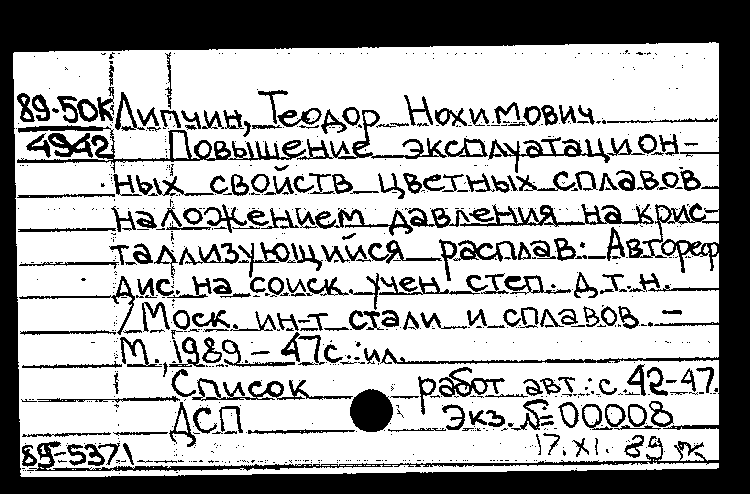 89-50К Липчин, Теодор Нохимович
4942 Повышение эксплуатацион-
ных свойств цветных сплавов
наложением давления на крис-
таллизующийся расплав: Автореф
дис. на соиск. учен. степ. д.т.н.
/Моск. ин-т стали и сплавов. –
М., 1989. – 47с.: ил.
Список работ авт.: с. 42-47.
ДСП Экз. №00008
89-5371 17.XI.89